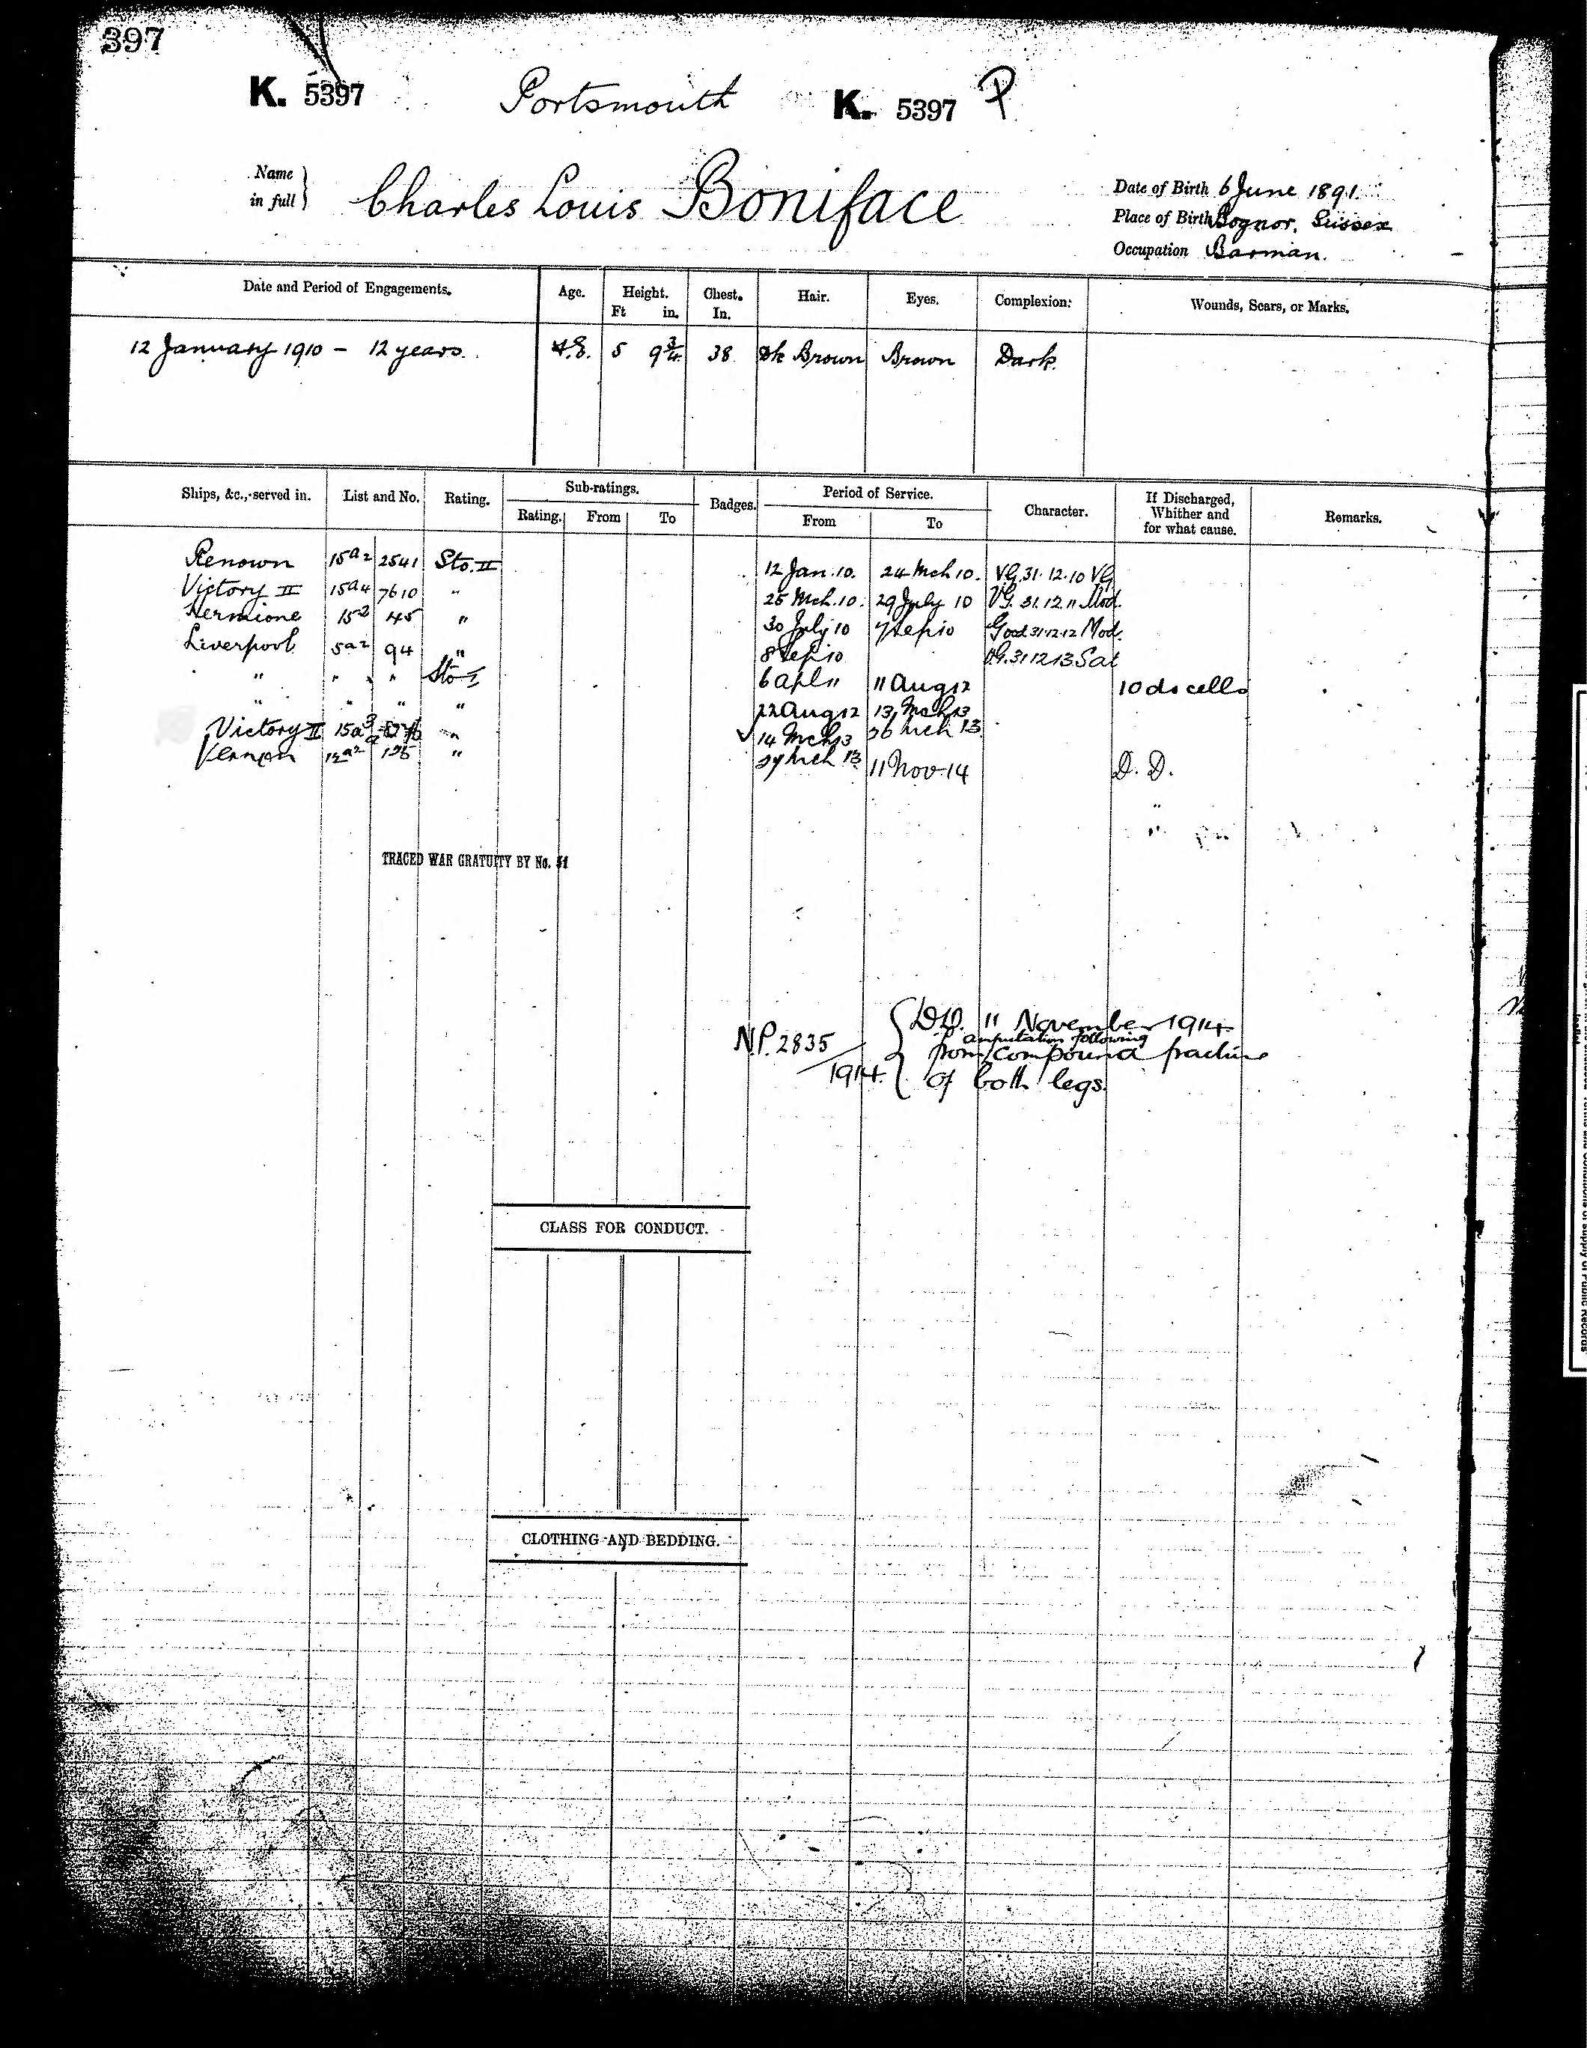 397
K. 5397 Portsmouth K. 5397 P
Name in full } Charles Louis Boniface
Date of Birth 6 June 1891.
Place of Birth Bognor. Sussex
Occupation Barman.
Date and Period of Engagements. Age. Height. Ft in. Chest. In. Hair. Eyes. Complexion: Wounds, Scars, or Marks.
12 January 1910 - 12 years. 5 9 3/4 38 Dk Brown Brown Dark.
Ships, &c., served in. List and No. Rating. Sub-ratings. Rating. From To Badges. Period of Service. From To Character. If Discharged, Whither and for what cause. Remarks.
Renown 15a2 2541 Sto. II 12 Jan. 10. 24 Mch 10. V.G. 31.12.10 VG
Victory II 15a4 7610 " 25 Mch. 10. 29 July 10 V.G. 31.12.11 Mod.
Hermione 45 " 30 July 10 7 Sep 10 Good 31.12.12 Mod.
Liverpool 5a2 94 " 8 Sep 10 V.G. 31 12 13 Sat
" " " Sto I 6 Apl 11 11 Aug 12 10 ds cells
" " " " 22 Aug 12 13 Mch 13
Victory II 15a3 " 14 Mch 13 26 Mch 13
Vernon " 27 Mch 13 11 Nov 14 D. D.
TRACED WAR GRATUITY BY No. 51
N.P. 2835/1914 { DD. 11 November 1914
from amputation following compound fracture
of both legs.
CLASS FOR CONDUCT.
CLOTHING AND BEDDING.